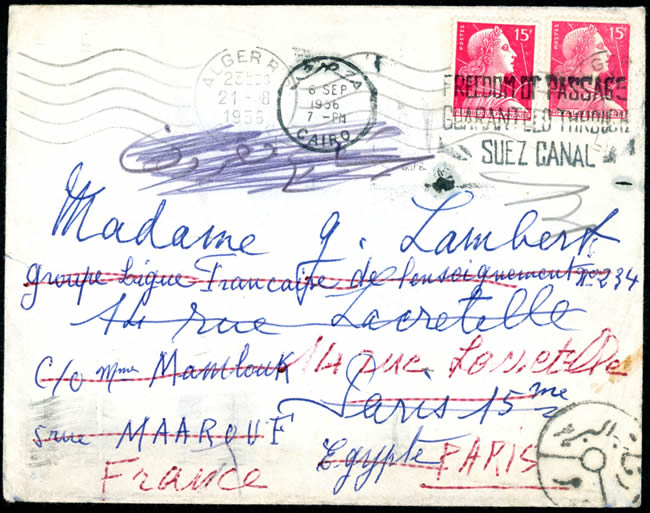 POSTES 15F POSTES 15F
ALGER R.P
23H30
21-8
1956
6 SEP
1956
7 - PM
CAIRO
FREEDOM OF PASSAGE
GUARANTEED THROUGH
SUEZ CANAL
Madame G. Lambert
groupe Ligue Française de l'enseignement N° 234
14 rue Lacretelle
C/o Mme Mamlouk 14 rue Lacretelle
Paris 15 me
5 rue MAAROUF
Egypte PARIS
France